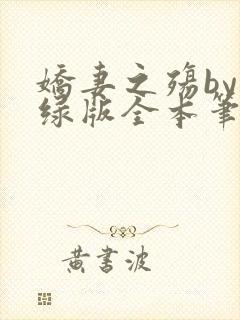 嬌妻之殤by
绿版全本筆
黄書波